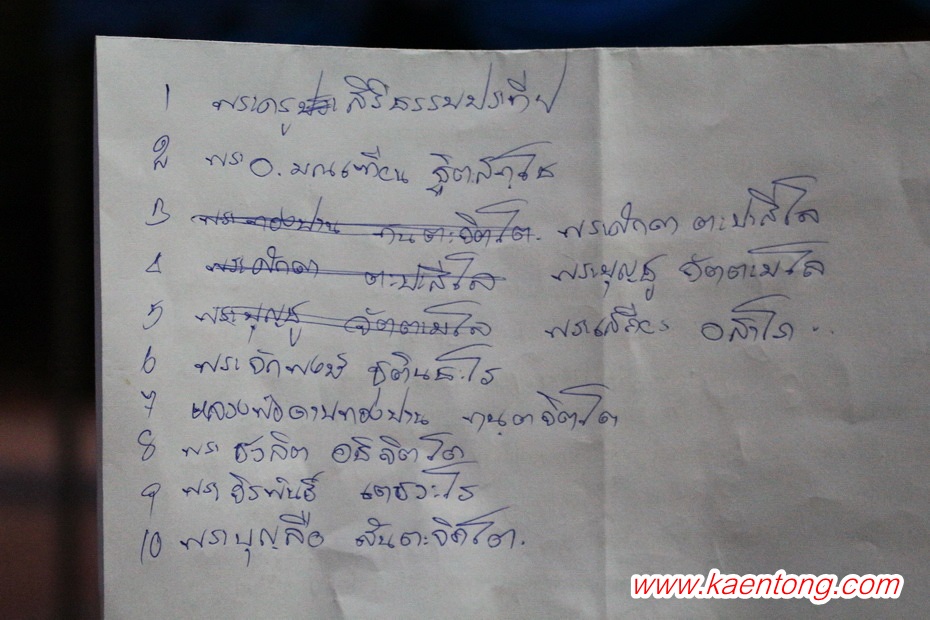 1 พระครู สิริธรรมประทีป
2 พระ อ. มณเฑียร ฐิตสทฺโธ
3 พระทองปาน ขนฺตะจิตฺโต. พระศักดา ตะปะสีโล
4 พระศักดา ตะปะสีโล พระบุญชู จัตตมโล
5 พระบุญชู จัตตมโล พระเสถียร
6 พระจักรพงษ์ ชุตินธโร
7 หลวงพ่อดาบทองปาน ขนฺตจิตฺโต
8 พระ ชวลิต อธิจิตโต
9 พระ จิรพันธ์ เตชวะโร
10 พระ บุญลือ สันตะจิตโต.
www.kaentong.com